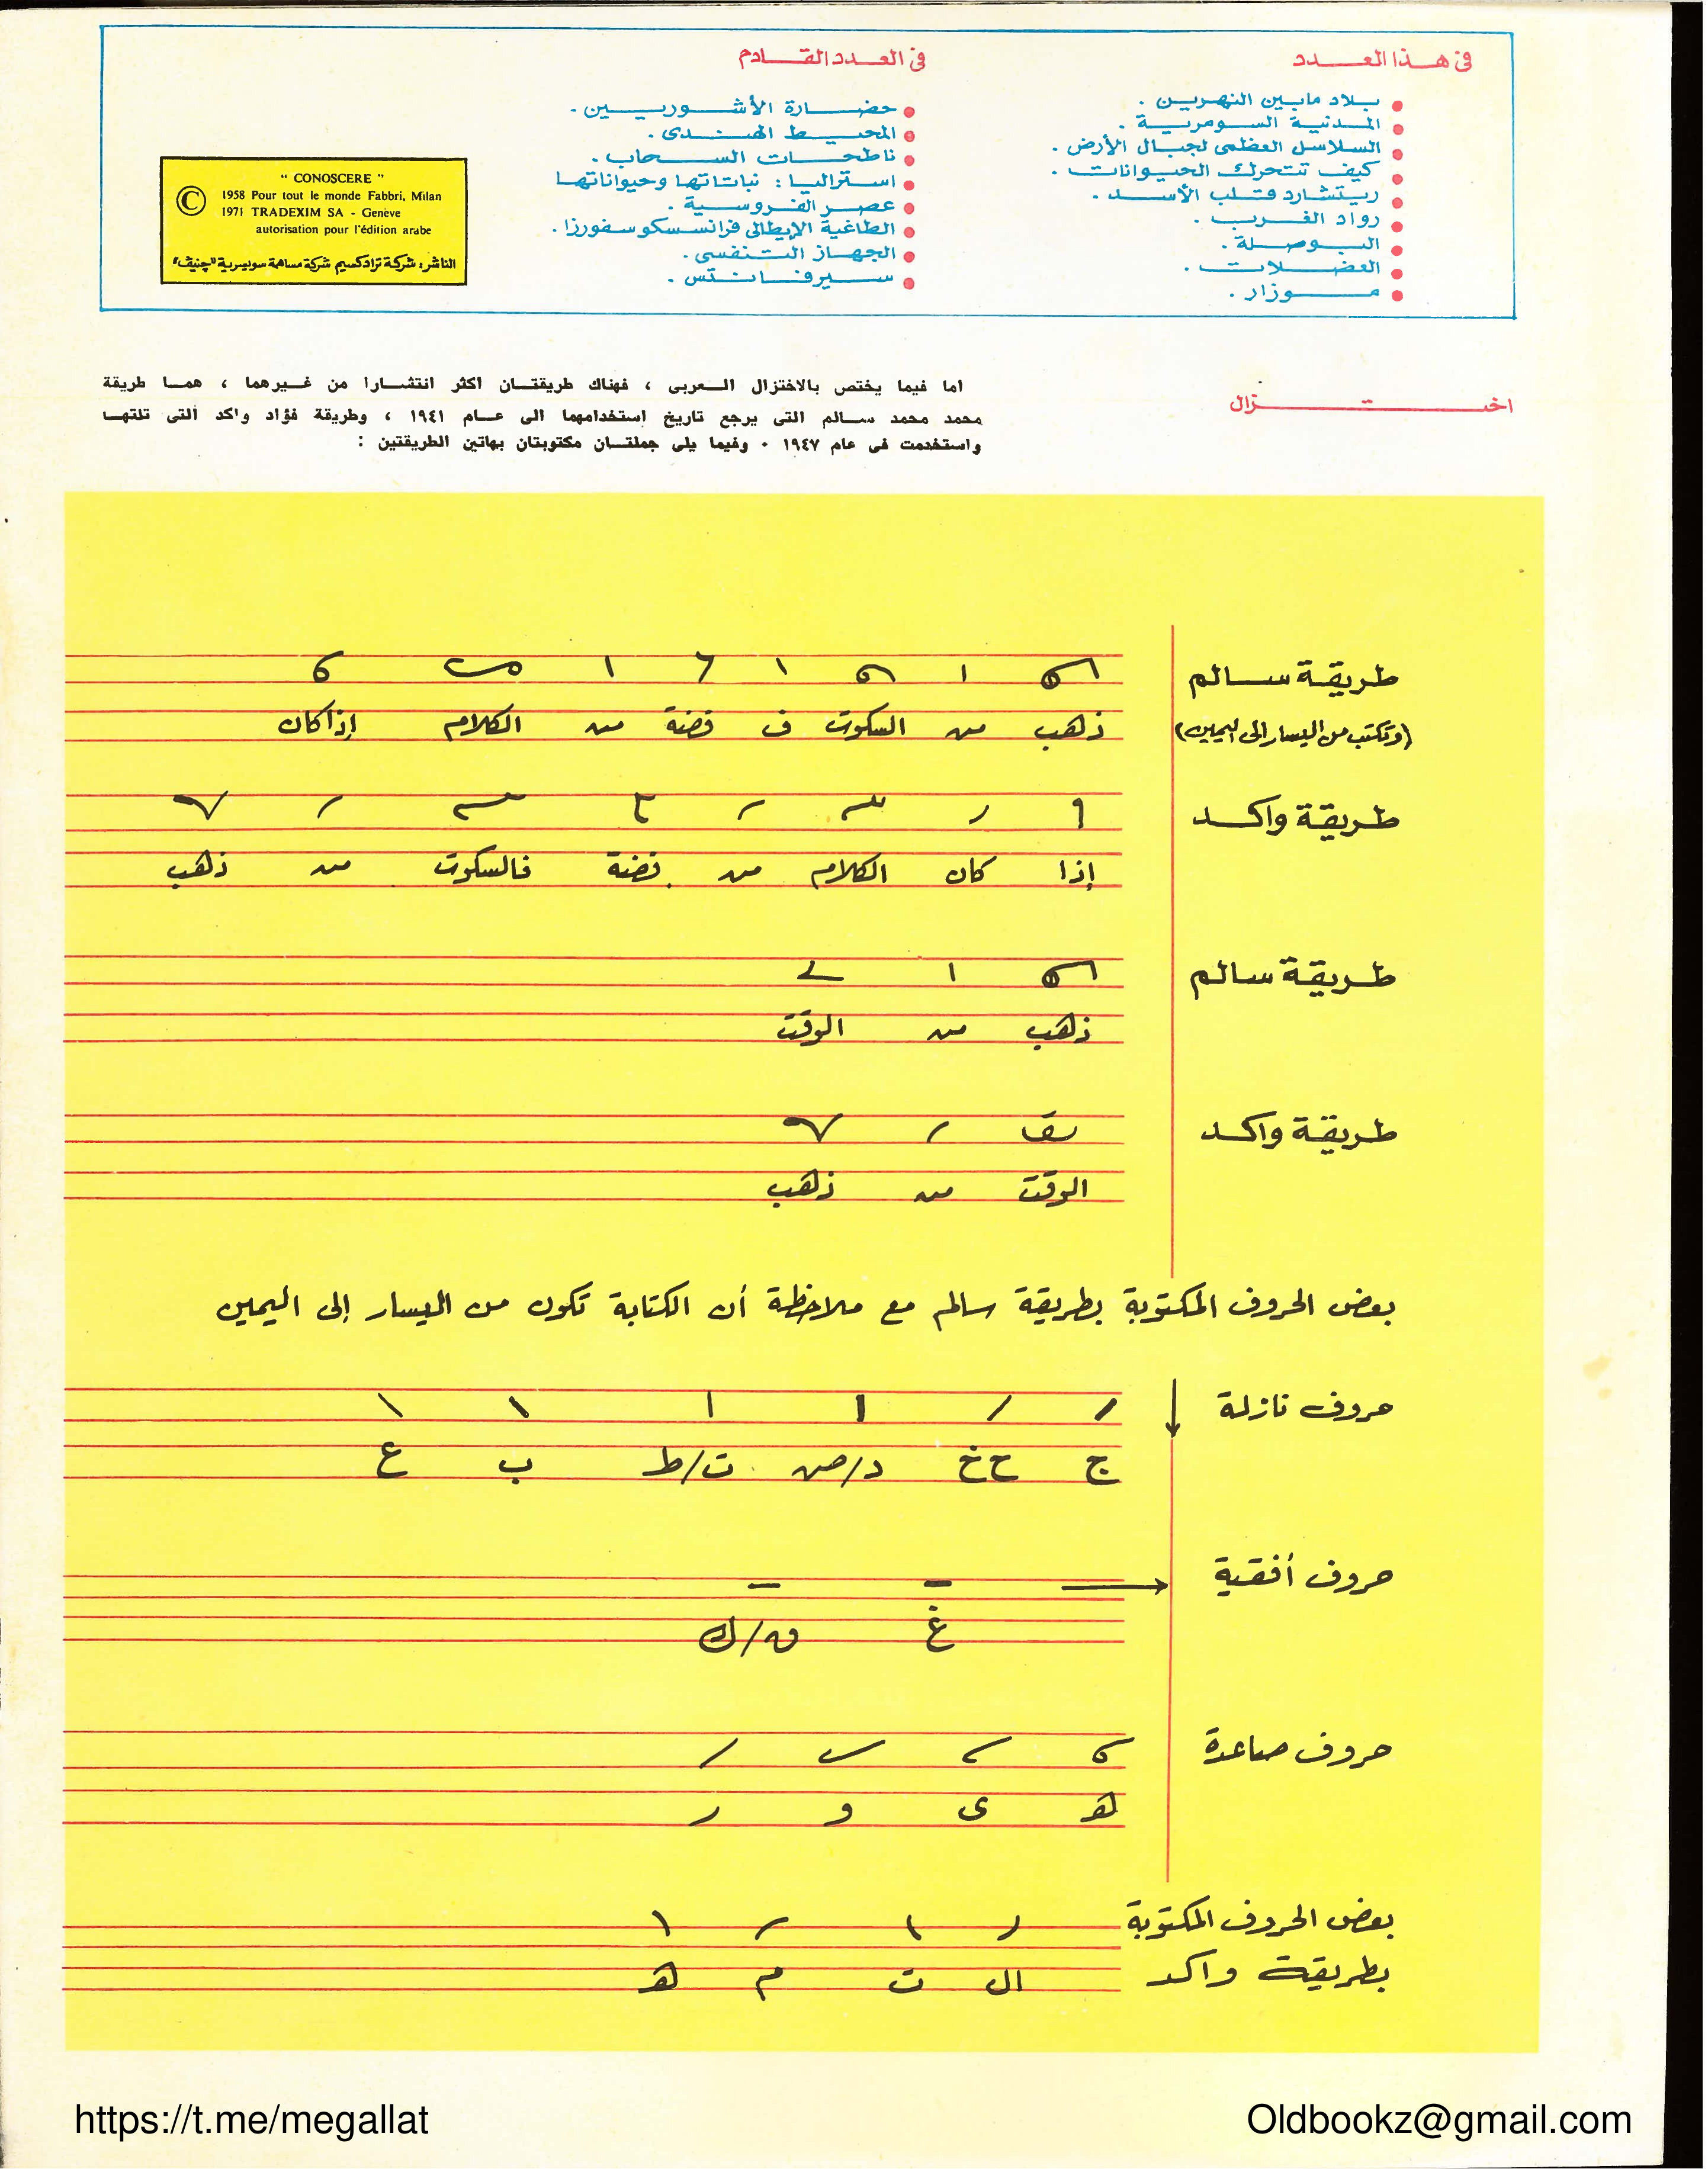 فى هذا العدد
بلاد مابين النهرين .
المدنية السومرية .
السلاسل العظمى لجبال الأرض .
كيف تتحرك الحيوانات .
ريتشارد قلب الأسد .
رواد الغرب .
البوصلة .
العضلات .
موزار .
فى العدد القادم
حضارة الأشوريين .
المحيط الهندى .
ناطحات السحاب .
استراليا : نباتاتها وحيواناتها
عصر الفروسية .
الطاغية الإيطالى فرانسسكو سفورزا .
الجهاز التنفسى .
سيرفانتس .
" CONOSCERE "
©
1958 Pour tout le monde Fabbri, Milan
1971 TRADEXIM SA - Genève
autorisation pour l'édition arabe
الناشر : شركة ترادكسيم شركة مساهمة سويسرية "چنيف"
اختزال
اما فيما يختص بالاختزال العربى ، فهناك طريقتان اكثر انتشارا من غيرهما ، هما طريقة
محمد محمد سالم التى يرجع تاريخ استخدامهما الى عام ١٩٤١ ، وطريقة فؤاد واكد التى تلتها
واستخدمت فى عام ١٩٤٧ . وفيما يلى جملتان مكتوبتان بهاتين الطريقتين :
طريقة سالم
(وتكتب من اليسار إلى اليمين)
ذهب من السكوت ف فضة من الكلام إذا كان
طريقة واكد
إذا كان الكلام من فضة فالسكوت من ذهب
طريقة سالم
ذهب من الوقت
طريقة واكد
الوقت من ذهب
بعض الحروف المكتوبة بطريقة سالم مع ملاحظة أن الكتابة تكون من اليسار إلى اليمين
حروف نازلة
ج ح خ د/ض ت/ط ب ع
حروف أفقية
غ ق/ك
حروف صاعدة
هـ ى و ر
بعض الحروف المكتوبة
بطريقة واكد
ال ت م هـ
https://t.me/megallat
Oldbookz@gmail.com